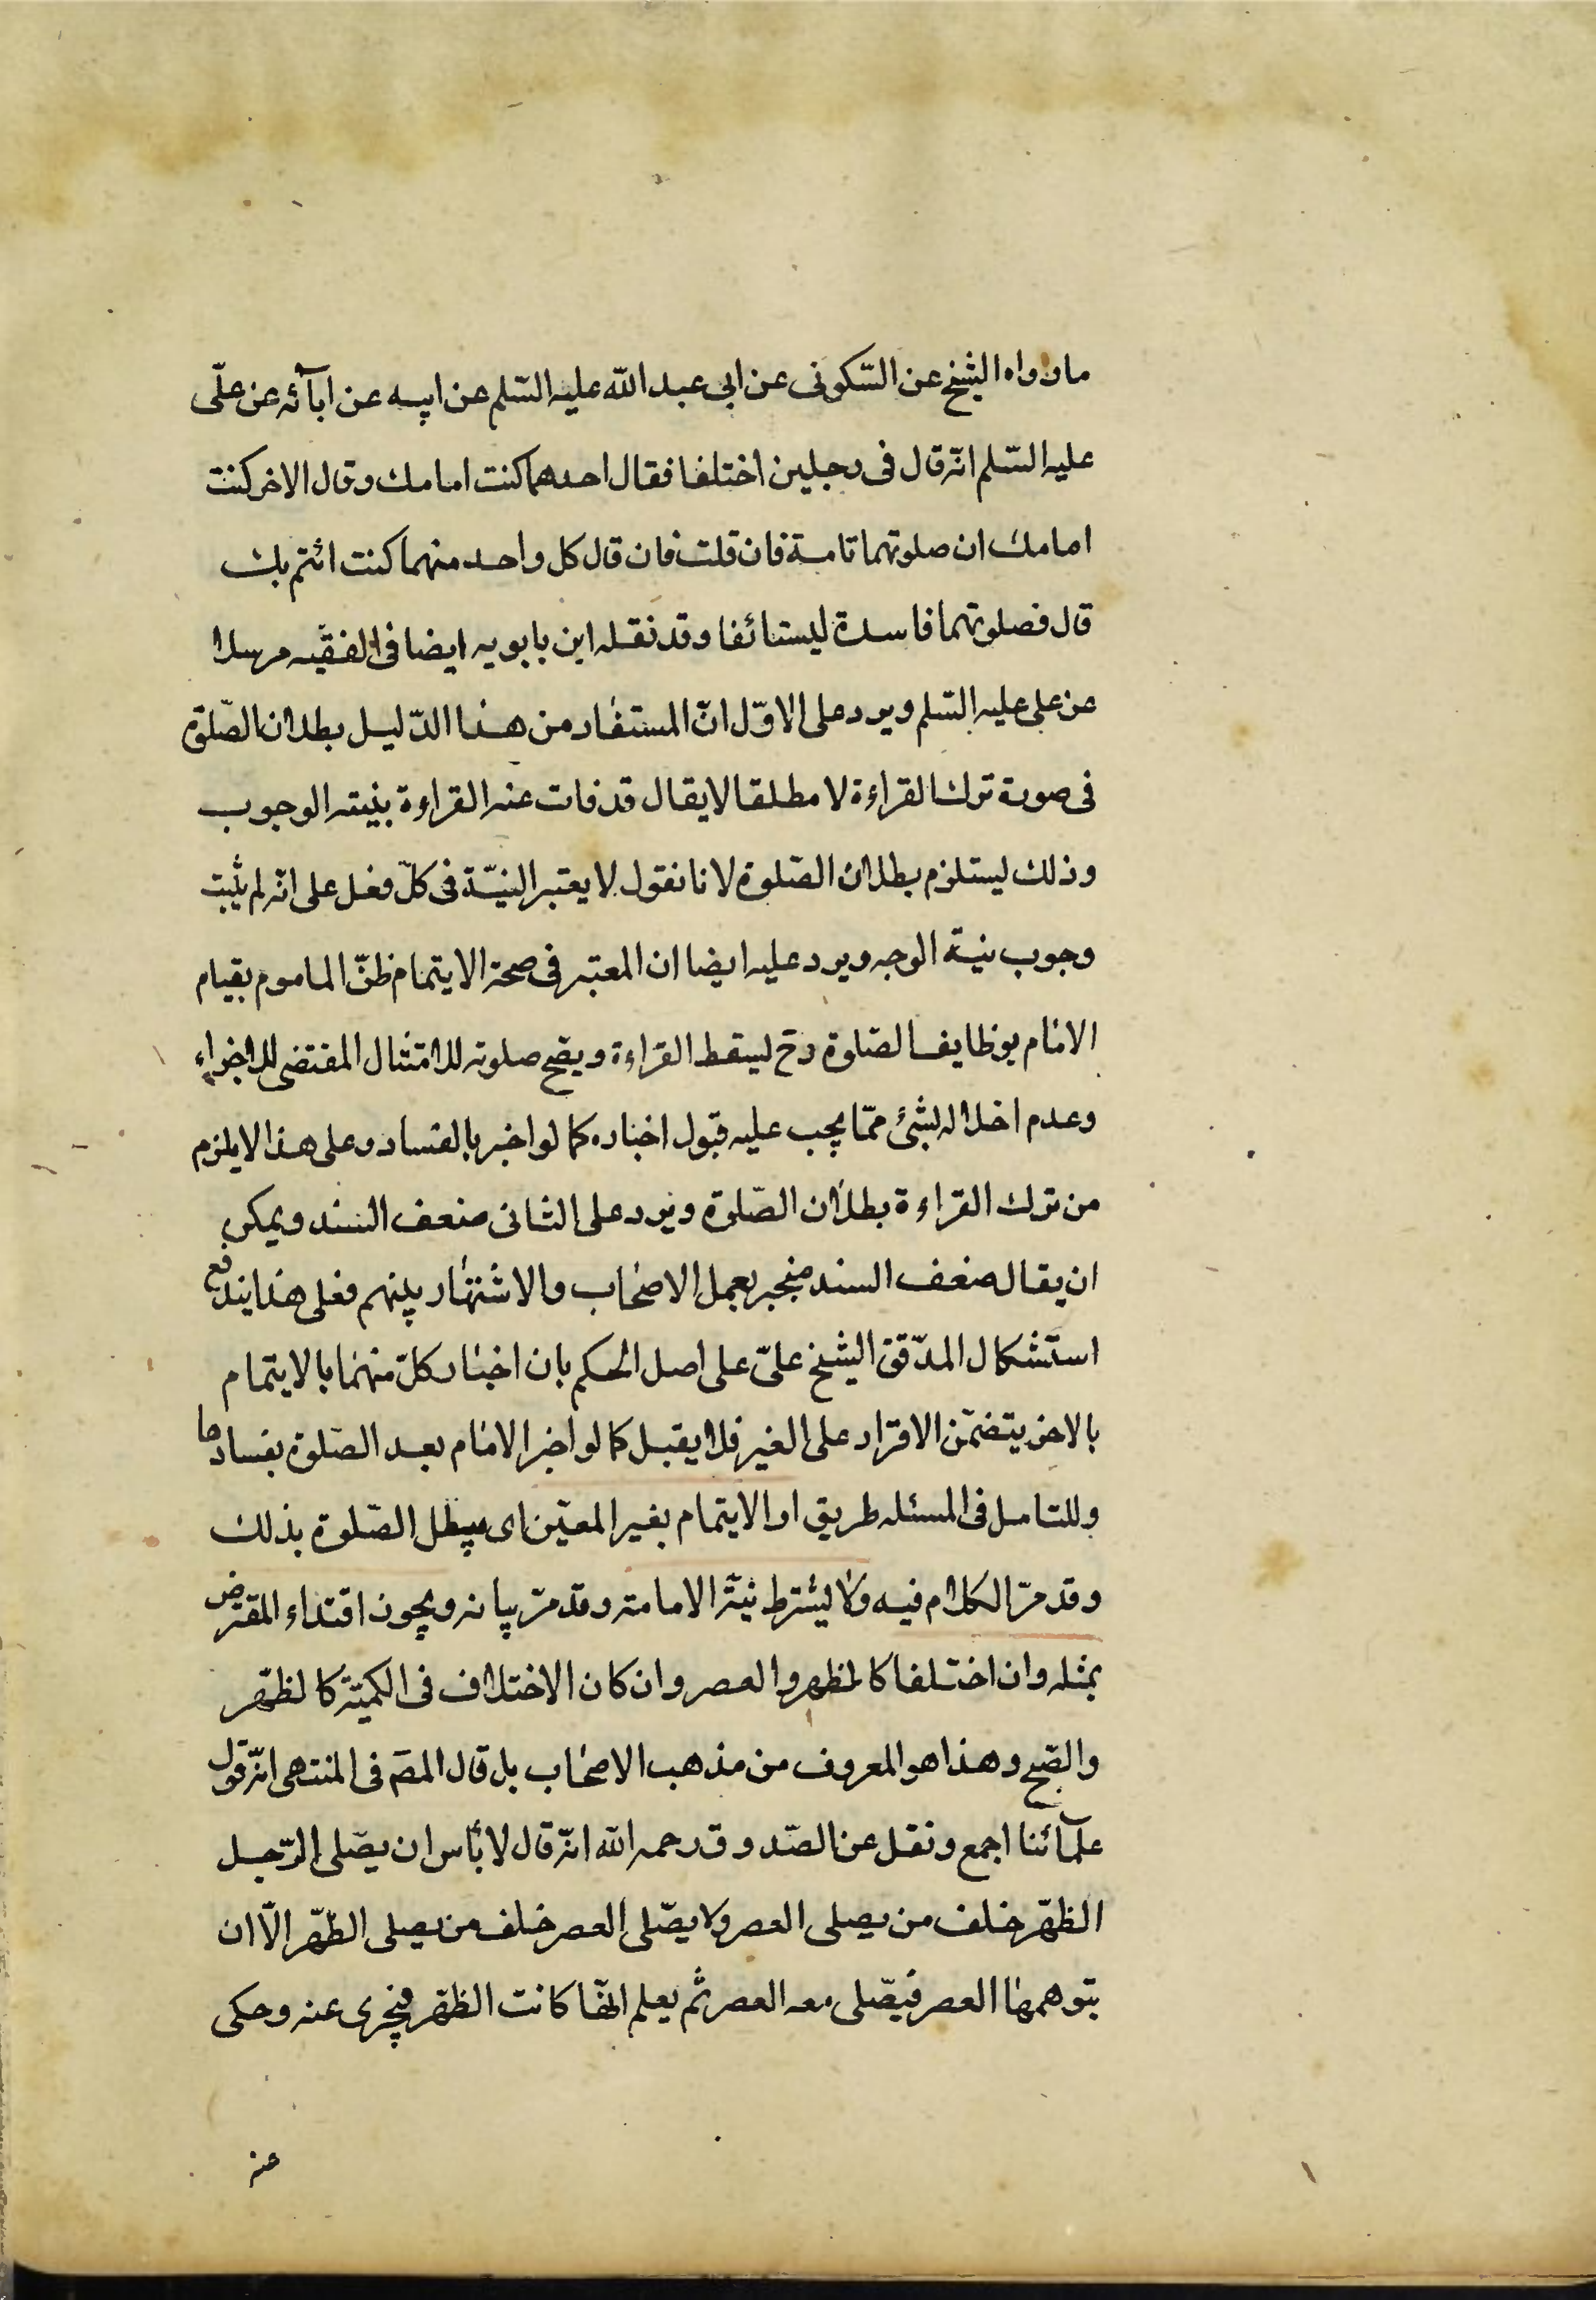 ما رواه الشيخ عن السّكونى عن ابى عبد الله عليه السّلم عن ابيه عن ابآئه عن علّى
عليه السّلم انّه قال فى رجلين اختلفا فقال احدهما كنت امامك وقال الاخر كنت
امامك ان صلوتهما تامة فان قلت فان قال كل واحد منهما كنت ائتم بك
قال فصلوتهما فاسدة ليستائفا وقد نقله ابن بابويه ايضا فى الفقيه مرسلا
عن على عليه السّلم ويرد على الاوّل انّ المستفاد من هذا الدّليل بطلان الصّلوة
فى صورة ترك القراءة لا مطلقا لا يقال قد فات عنه القراءة بنيته الوجوب
وذلك ليستلزم بطلان الصّلوة لانا نقول لا يعتبر النيّة فى كلّ فعل على انّه لم يثبت
وجوب نية الوجه ويرد عليه ايضا ان المعتبر فى صحة الايتمام ظنّ الماموم بقيام
الامام بوظايف الصّلوة وح ليسقط القراءة ويصّح صلوته للامتثال المقتضى للاجزاء
وعدم اخلاله لبشئ ممّا يجب عليه قبول اخباره كما لو اخبر بالفساد وعلى هذا لا يلزم
من ترك القراءة بطلان الصّلوة ويرد على الثانى ضعف السّند ويمكن
ان يقال ضعف السند منجبر بعمل الاصحاب والاشتهار بينهم فعلى هذا يندفع
استشكال المدّقق الشيخ علىّ على اصل الحكم بان اخبار كلّ منهما بالايتمام
بالاخر يتضمّن الاقرار على الغير فلا يقبل كما لو اخبر الامام بعد الصّلوة بفسادها
وللتامل فى المسئله طريق او الايتمام بغير المعيّن اى يبطل الصّلوة بذلك
وقد مرّ الكلام فيه ولا ليشترط نيّة الامامة وقد مرّ بيانه ويجوز اقتداء المفترض
بمثله وان اختلفا كالظهر والعصر وان كان الاختلاف فى الكميّة كالظهّر
والصّبح وهذا هو المعروف من مذهب الاصحاب بل قال المصّ فى المنتهى انّه قول
علمآئنا اجمع ونقل عن الصّدوق رحمه الله انّه قال لا بأس ان يصّلى الرّجل
الظهّر خلف من يصلى العصر ولا يصّلى العصر خلف من يصلى الظّهر الّا ان
يتوهمها العصر فيصّلى معه العصر ثم يعلم انهّا كانت الظهّر فيجزى عنه وحكى
عنه